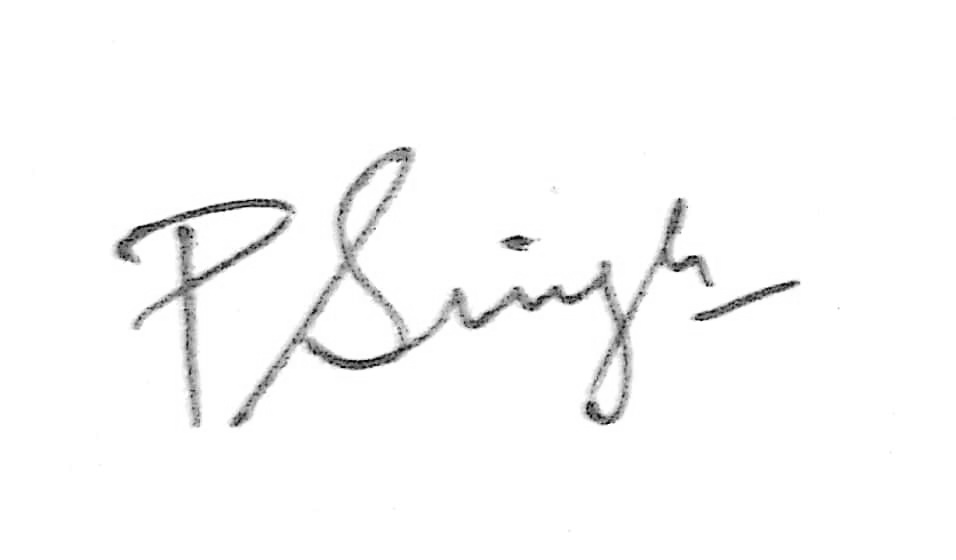 P Singh